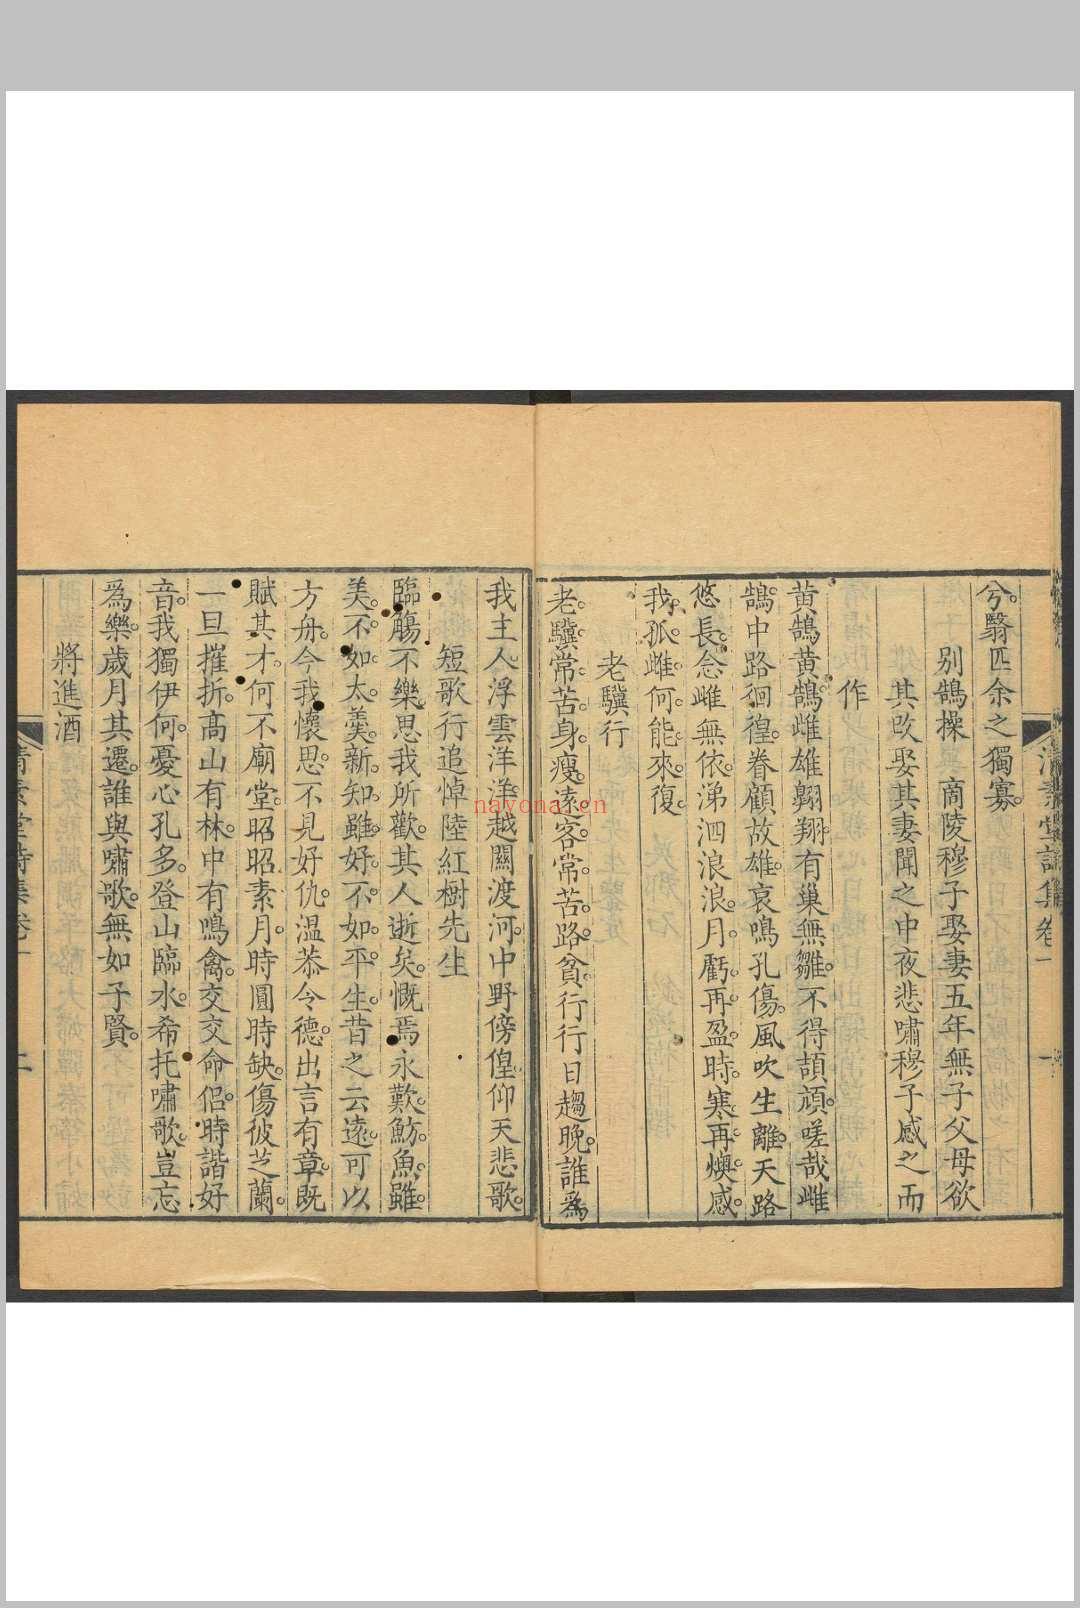 兮翳匹余之獨寡
别鵠操　商陵穆子娶妻五年無子父母欲
其改娶其妻聞之中夜悲嘯穆子感之而
作
黄鵠黄鵠雌雄翱翔有巢無雛不得頡頏嗟哉雌
鵠中路徊徨眷顧故雄哀鳴孔傷風吹生離天路
悠長念雌無依涕泗浪浪月虧再盈時寒再燠感
我孤雌何能來復
老驥行
老驥常苦身瘦遠客常苦路貧行行日趨晚誰爲
我主人浮雲洋洋越關渡河中野傍偟仰天悲歌
短歌行追悼陸紅樹先生
臨觴不樂思我所歡其人逝矣慨焉永歎魴魚雖
美不如太羹新知雖好不如平生昔之云遠可以
方舟今我懷思不見好仇温恭令德出言有章既
賦其才何不廟堂昭昭素月時圓時缺傷彼芝蘭
一旦摧折高山有林中有鳴禽交交命侣時諧好
音我獨伊何憂心孔多登山臨水希托嘯歌豈忘
爲樂歲月其遷誰與嘯歌無如子賢
將進酒
清素堂詩集卷一
二
nayona.cn